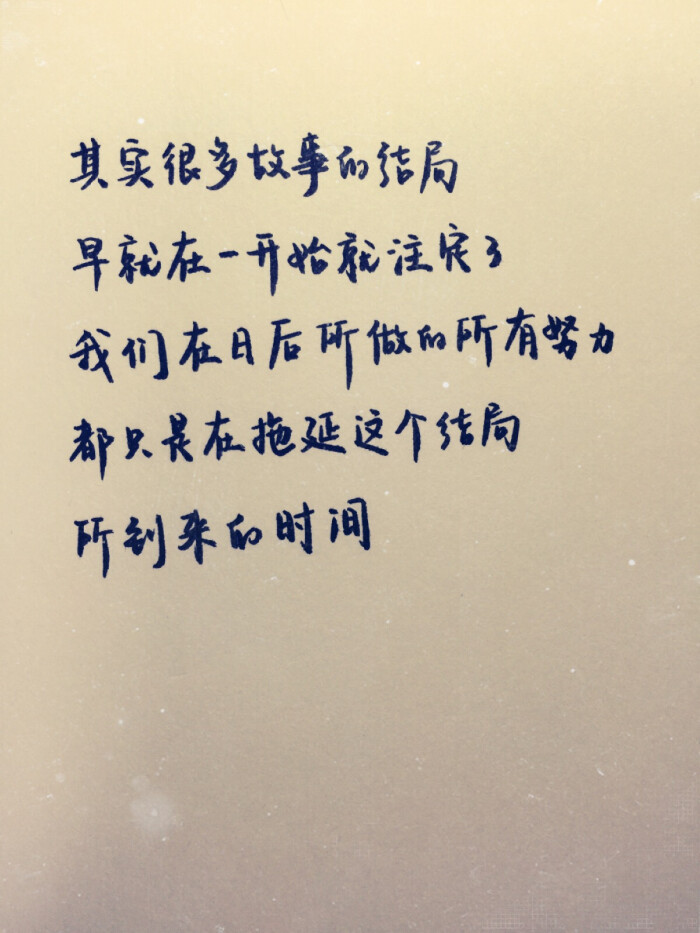 其实很多故事的结局
早就在一开始就注定了
我们在日后所做的所有努力
都只是在拖延这个结局
所到来的时间